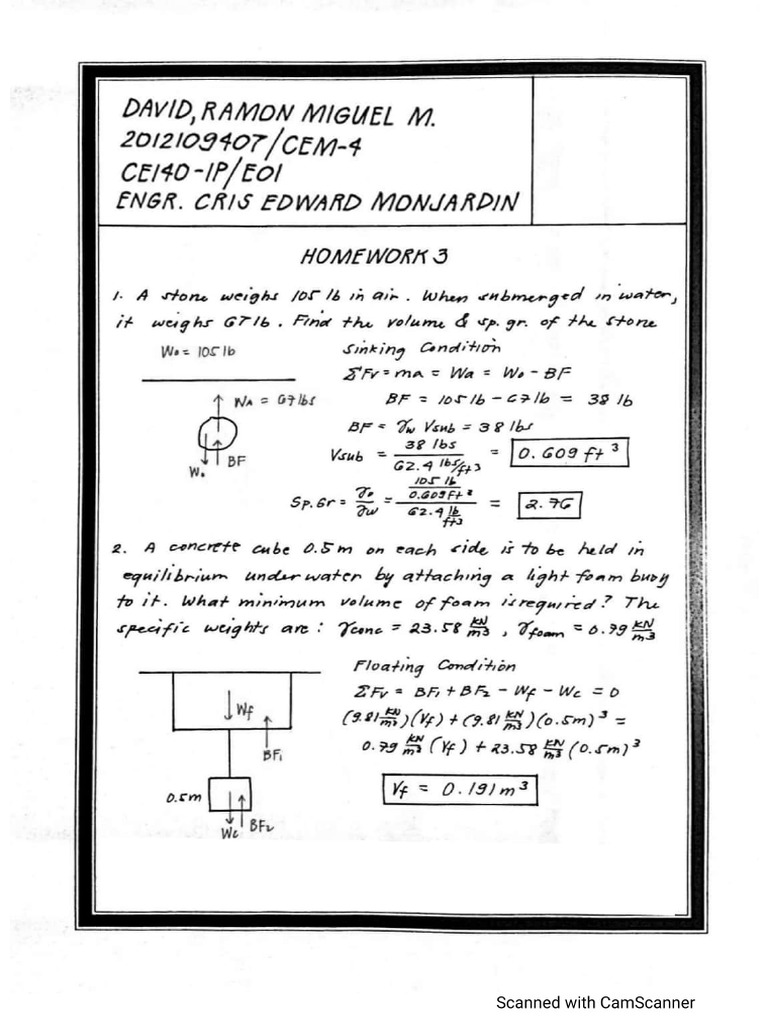 DAVID, RAMON MIGUEL M.
2012109407/CEM-4
CE140-1P/E01
ENGR. CRIS EDWARD MONJARDIN
HOMEWORK 3
1. A stone weighs 105 lb in air. When submerged in water,
it weighs 67 lb. Find the volume & sp. gr. of the stone
W₀ = 105 lb
WA = 67 lbs
BF
W₀
Sinking Condition
ΣFv = ma = Wa = W₀ - BF
BF = 105 lb - 67 lb = 38 lb
BF = γw Vsub = 38 lbs
Vsub = 38 lbs / 62.4 lbs/ft³ = 0.609 ft³
Sp. Gr = γ₀/γw = (105 lb / 0.609 ft³) / (62.4 lb/ft³) = 2.76
2. A concrete cube 0.5 m on each side is to be held in
equilibrium under water by attaching a light foam buoy
to it. What minimum volume of foam is required? The
specific weights are: γconc = 23.58 KN/m3, γfoam = 0.79 KN/m3
Wf
BF₁
0.5m
Wc
BF₂
Floating Condition
ΣFv = BF₁ + BF₂ - Wf - Wc = 0
(9.81 KN/m³)(Vf) + (9.81 KN/m³)(0.5m)³ =
0.79 KN/m³ (Vf) + 23.58 KN/m³ (0.5m)³
Vf = 0.191 m³
Scanned with CamScanner